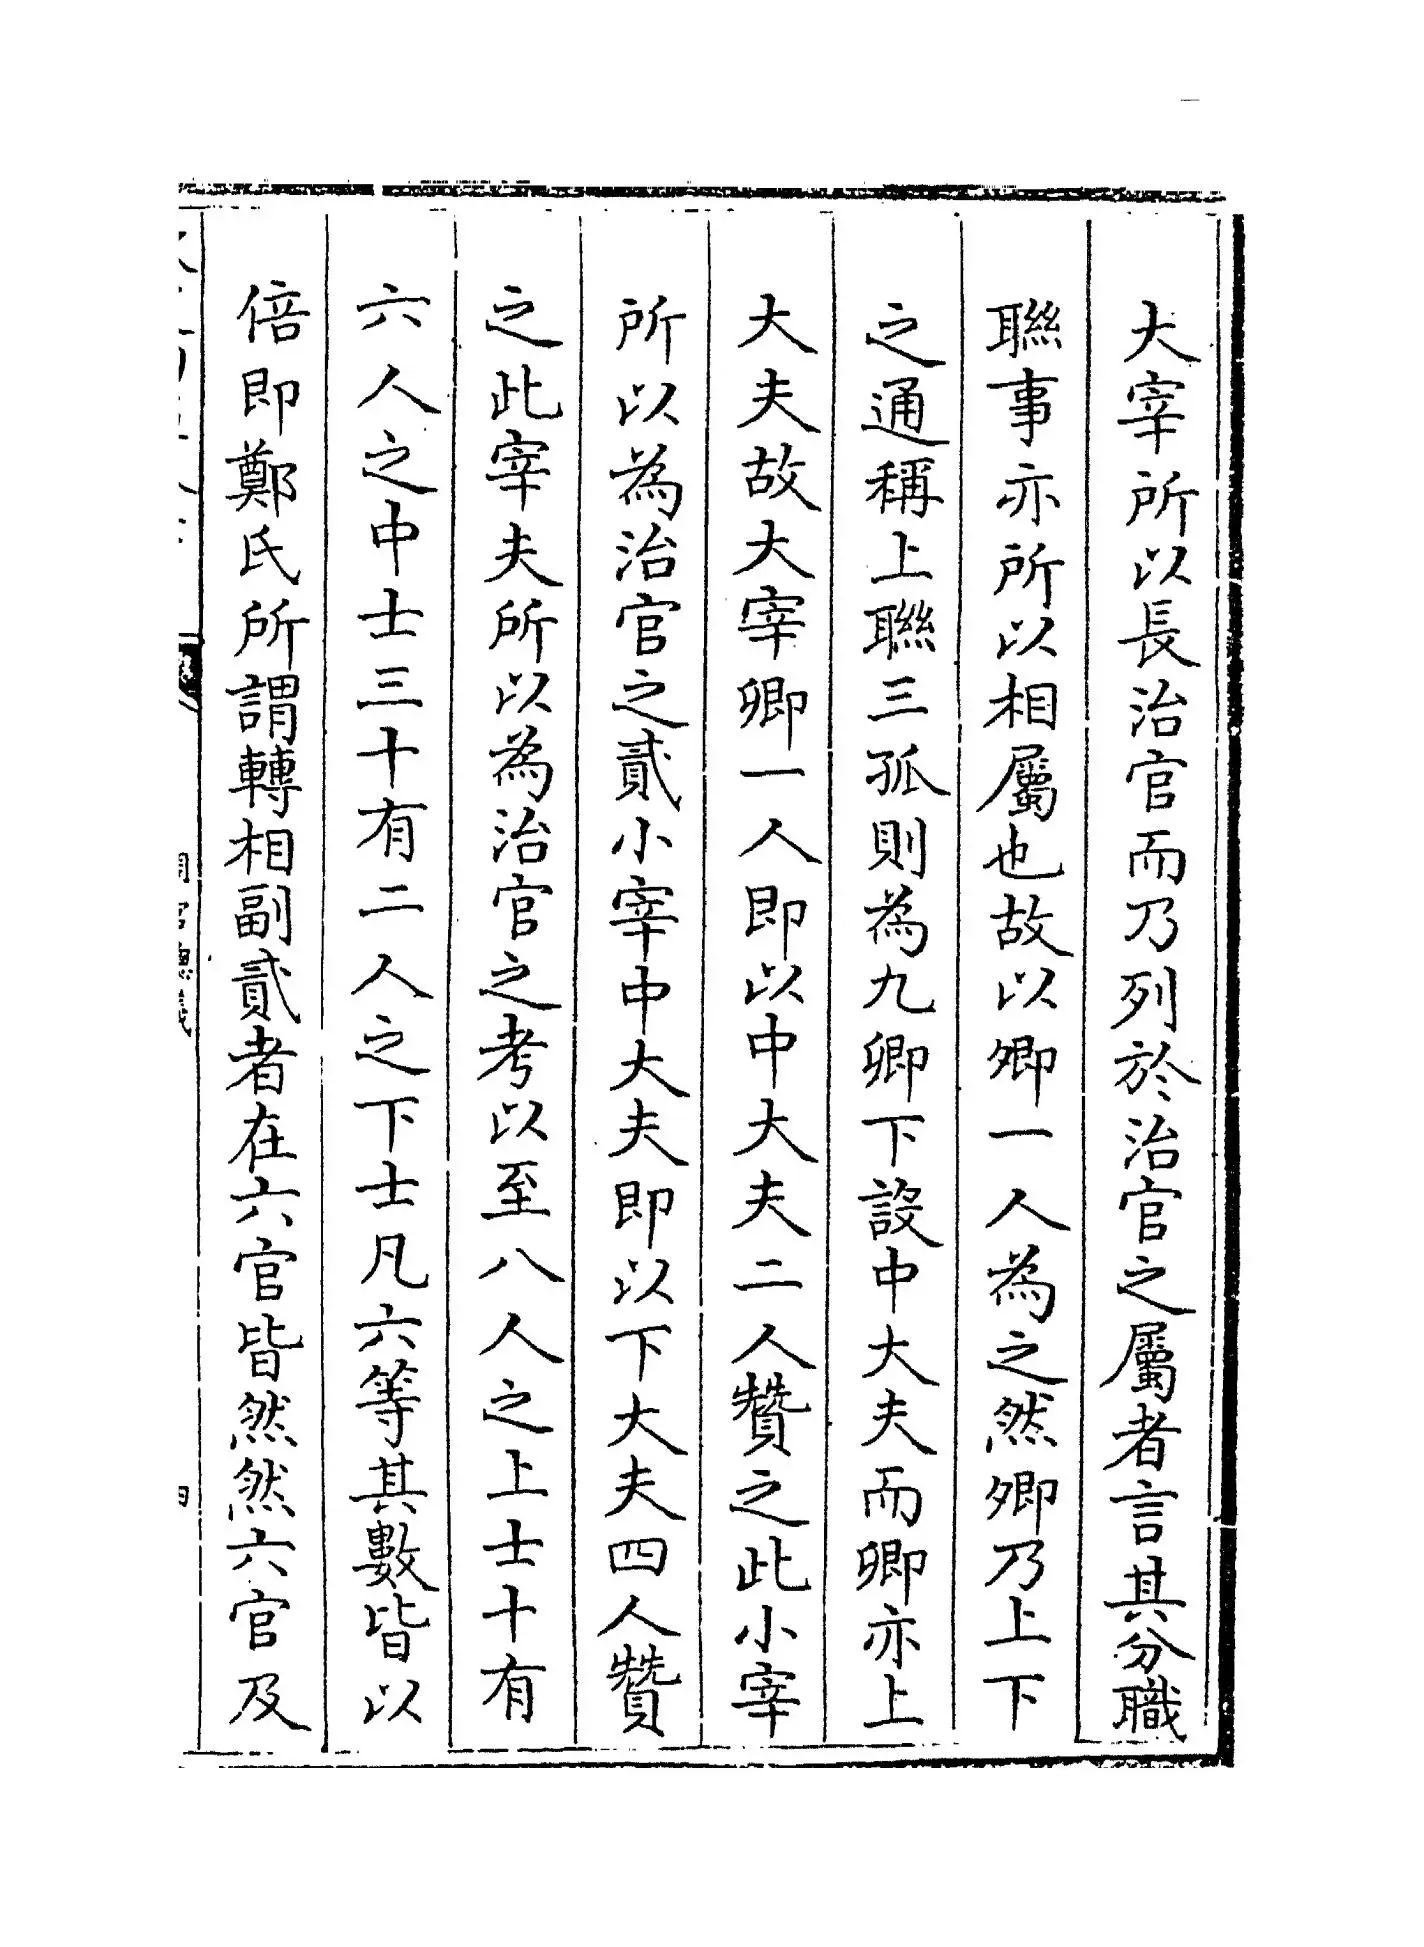 大宰所以長治官而乃列於治官之屬者言其分職
聯事亦所以相屬也故以卿一人為之然卿乃上下
之通稱上聯三孤則為九卿下設中大夫而卿亦上
大夫故大宰卿一人即以中大夫二人贊之此小宰
所以為治官之貳小宰中大夫即以下大夫四人贊
之此宰夫所以為治官之考以至八人之上士十有
六人之中士三十有二人之下士凡六等其數皆以
倍即鄭氏所謂轉相副貳者在六官皆然然六官及